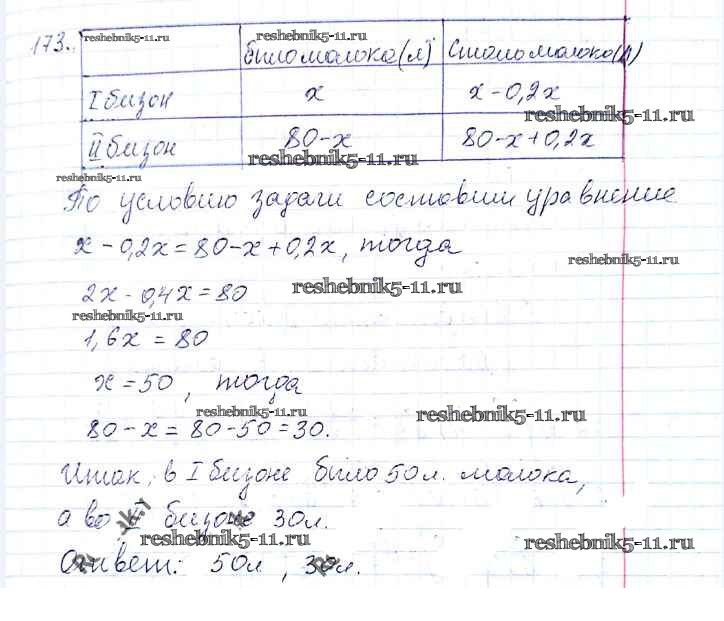 173. reshebnik5-11.ru было молоко(л) reshebnik5-11.ru стало молоко(л)
I бизон x x - 0,2x reshebnik5-11.ru
II бизон 80-x 80-x+0,2x reshebnik5-11.ru
reshebnik5-11.ru
По условию задачи составим уравнение
x - 0,2x = 80-x+0,2x, тогда reshebnik5-11.ru
2x - 0,4x = 80 reshebnik5-11.ru
reshebnik5-11.ru
1,6x = 80
x = 50, тогда
reshebnik5-11.ru reshebnik5-11.ru
80-x = 80-50=30.
Итак, в I бизоне было 50л. молока,
а во II бизоне 30л.
reshebnik5-11.ru reshebnik5-11.ru
Ответ: 50л, 30л.